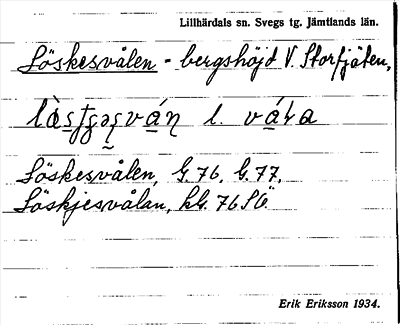 Lillhärdals sn. Svegs tg. Jämtlands län.
Löskesvålen - bergshöjd V. Storfjäten,
l. våla
Löskesvålen, G. 76, G. 77.
Löskjesvålan, kG. 76 SÖ
Erik Eriksson 1934.